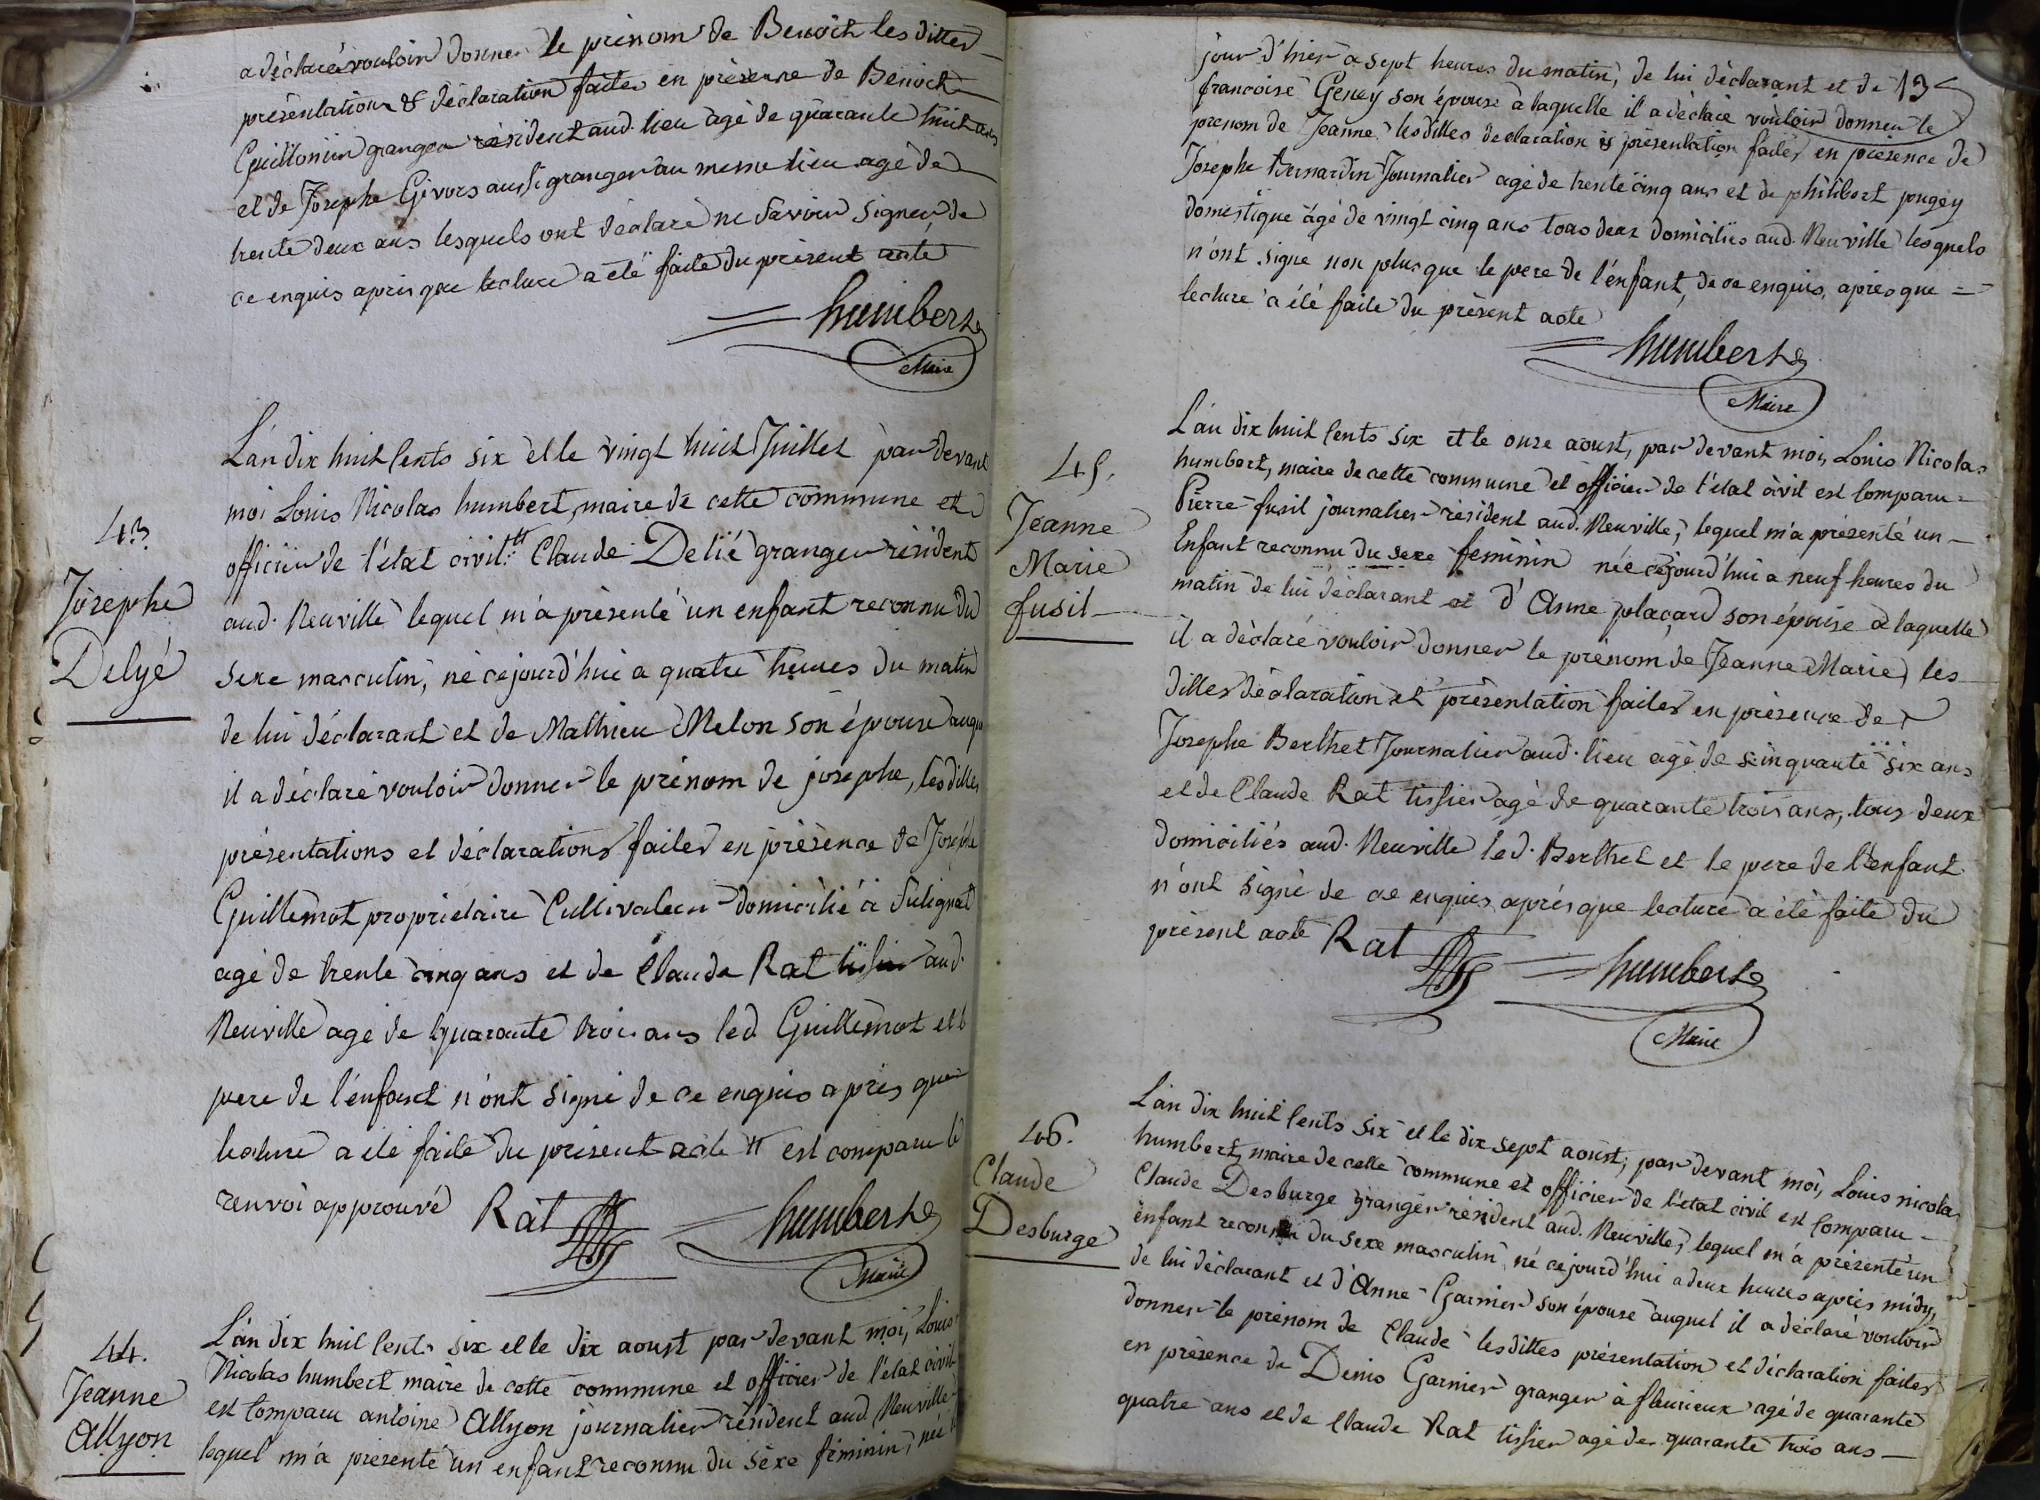 a déclaré vouloir donner le prénom de Benoît les dittes
présentation & déclaration faites en présence de Benoit
Guillomin granger résident aud. lieu agé de quarante huit ans
et de Josephe Givors aussi granger au meme lieu agé de
trente deux ans lesquels ont déclaré ne savoir signer de
ce enquis après que lecture a été faite du présent acte
humbert
Maire
43.
Josephe
Delyé
L'an dix huit cents six et le vingt huit Juillet par devant
moi Louis Nicolas humbert, maire de cette commune et
officier de l'état civil # Claude Delié granger résident
aud. Neuville lequel m'a présenté un enfant reconnu du
sexe masculin, né cejourd'hui a quatre heures du matin
de lui déclarant et de Mathieu Melon son épouse auquel
il a déclaré vouloir donner le prénom de josephe, les dittes
présentations et déclarations faites en présence de Josephe
Guillemot propriétaire Cultivateur domicilié à Sulignat
agé de trente cinq ans et de Claude Rat tissier aud.
Neuville agé de quarante trois ans led Guillemot et le
pere de l'enfant n'ont signé de ce enquis après que
lecture a été faite du présent acte # est comparu le
renvoi approuvé Rat humbert
Maire
44.
Jeanne
Allyon
L'an dix huit cents six et le dix aoust par devant moi, Louis
Nicolas humbert maire de cette commune et officier de l'état civil
est comparu antoine Allyon journalier résident aud. Neuville
lequel m'a présenté un enfant reconnu du sexe féminin, née le
13
jour d'hier a sept heures du matin, de lui déclarant et de
francoise Geney son épouse à laquelle il a déclaré vouloir donner le
prenom de Jeanne les dittes declaration & présentation faites en présence de
Josephe Bernardin Journalier agé de trente cinq ans et de philibert pugey
domestique agé de vingt cinq ans tous deux domiciliés aud. Neuville lesquels
n'ont signé non plus que le pere de l'enfant, de ce enquis, après que =
lecture a été faite du présent acte
humbert
Maire
45.
Jeanne
Marie
fusil
L'an dix huit cents six et le onze aoust, par devant moi, Louis Nicolas
humbert, maire de cette commune et officier de l'état civil est comparu =
Pierre fusil journalier résident aud. Neuville, lequel m'a présenté un —
Enfant reconnu du sexe feminin née cejourd'hui a neuf heures du
matin de lui déclarant et d'Anne plaçard son épouse à laquelle
il a déclaré vouloir donner le prenom de Jeanne Marie, les
dittes déclaration et présentation faites en présence de
Josephe Berthet Journalier aud. lieu agé de seinquante six ans
et de Claude Rat tissier agé de quarante trois ans, tous deux
domiciliés aud. Neuville led. Berthet et le pere de l'enfant
n'ont signé de ce enquis après que lecture a été faite du
présent acte Rat humbert
Maire
46.
Claude
Desburge
L'an dix huit cents six et le dix sept aoust, par devant moi, Louis nicolas
humbert, maire de cette commune et officier de l'état civil est comparu —
Claude Desburge granger résident aud. Neuville, lequel m'a présenté un
enfant reconnu du sexe masculin, né cejourd'hui a deux heures après midy,
de lui déclarant et d'Anne Garnier son épouse auquel il a déclaré vouloir
donner le prénom de Claude les dittes présentation et déclaration faites
en présence de Denis Garnier granger à fleurieux agé de quarante
quatre ans et de Claude Rat tissier agé de quarante trois ans —